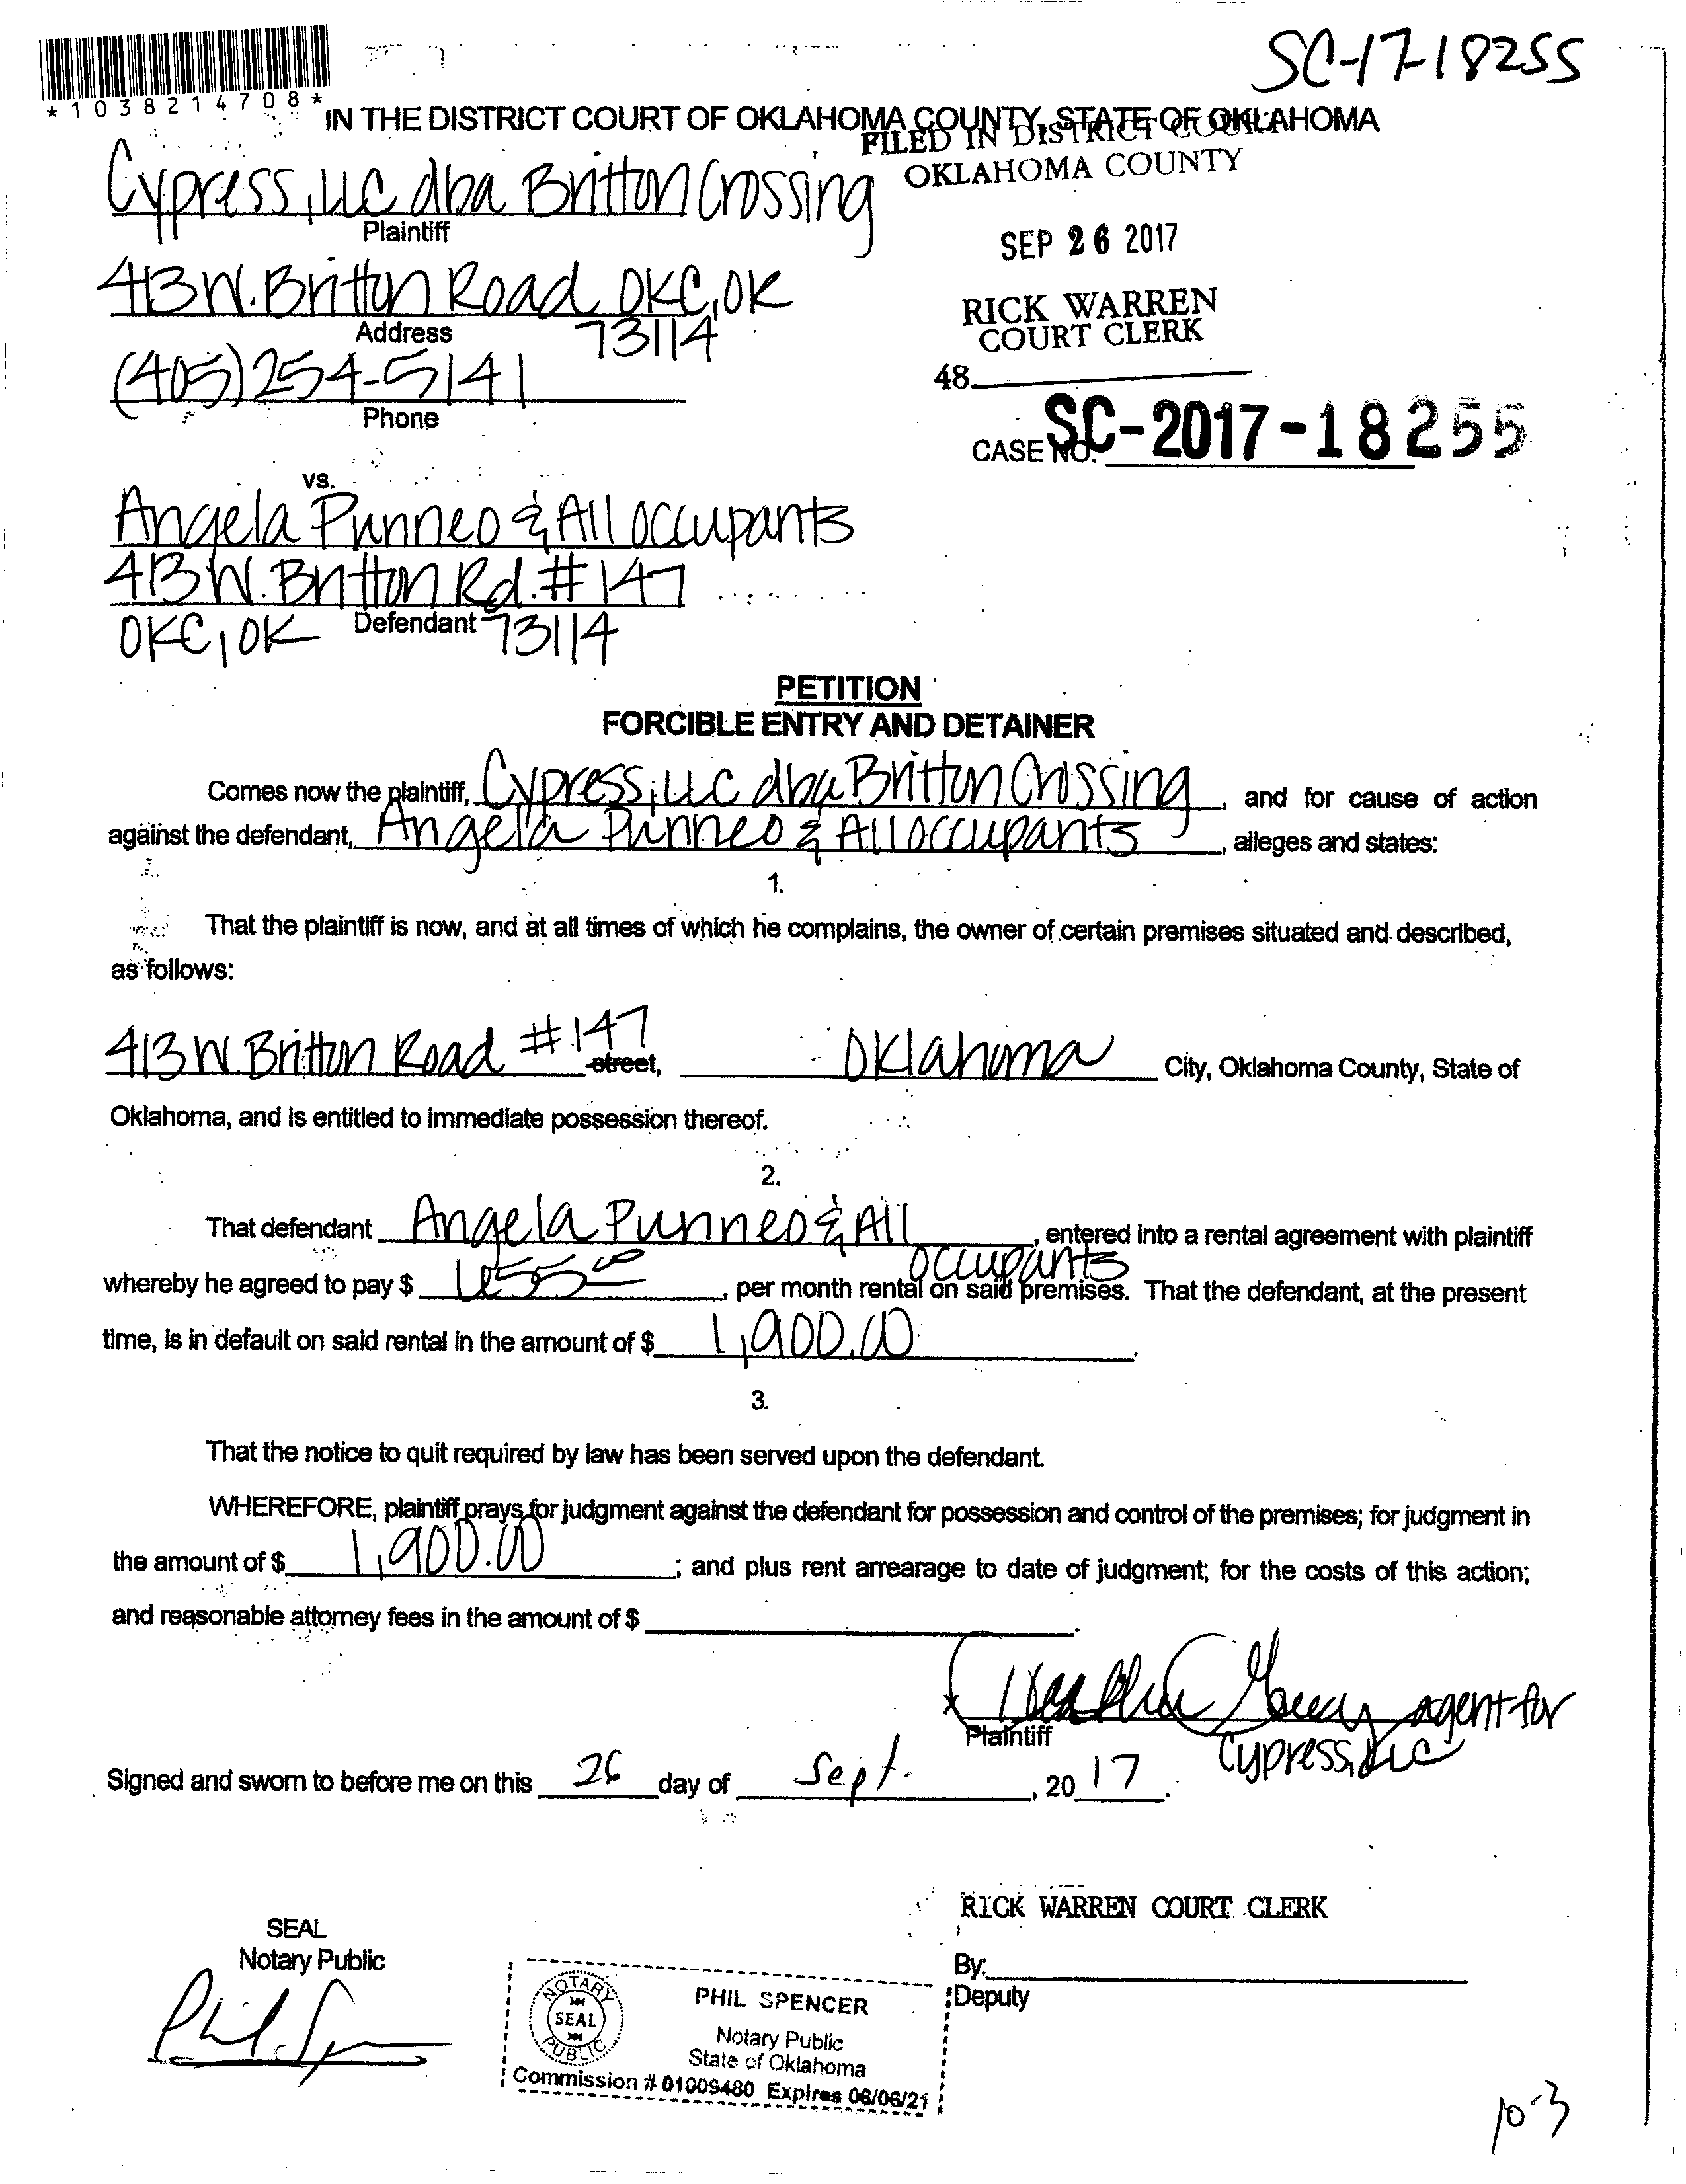 SC-17-18255
*1038214708*
IN THE DISTRICT COURT OF OKLAHOMA COUNTY, STATE OF OKLAHOMA
FILED IN DISTRICT COURT
OKLAHOMA COUNTY
Cypress, LLC dba Britton Crossing
Plaintiff
SEP 26 2017
413 W. Britton Road OKC, OK
Address
73114
RICK WARREN
COURT CLERK
(405) 254-5141
Phone
48
CASE NO. SC-2017-18255
vs.
Angela Punneo & All occupants
413 W. Britton Rd. #147
OKC, OK Defendant 73114
PETITION
FORCIBLE ENTRY AND DETAINER
Comes now the plaintiff, Cypress, LLC dba Britton Crossing, and for cause of action
against the defendant, Angela Punneo & All occupants, alleges and states:
1.
That the plaintiff is now, and at all times of which he complains, the owner of certain premises situated and described,
as follows:
413 W Britton Road #147 street, Oklahoma City, Oklahoma County, State of
Oklahoma, and is entitled to immediate possession thereof.
2.
That defendant Angela Punneo & All occupants, entered into a rental agreement with plaintiff
whereby he agreed to pay $ 655.00, per month rental on said premises. That the defendant, at the present
time, is in default on said rental in the amount of $ 1,900.00.
3.
That the notice to quit required by law has been served upon the defendant.
WHEREFORE, plaintiff prays for judgment against the defendant for possession and control of the premises; for judgment in
the amount of $ 1,900.00; and plus rent arrearage to date of judgment; for the costs of this action;
and reasonable attorney fees in the amount of $
x agent for
Plaintiff
Cypress, LLC
Signed and sworn to before me on this 26 day of Sept., 2017.
RICK WARREN COURT CLERK
SEAL
Notary Public
By:
Deputy
Phil Spencer
NOTARY PUBLIC
SEAL
PHIL SPENCER
Notary Public
State of Oklahoma
Commission # 01009480 Expires 06/06/21
10-3